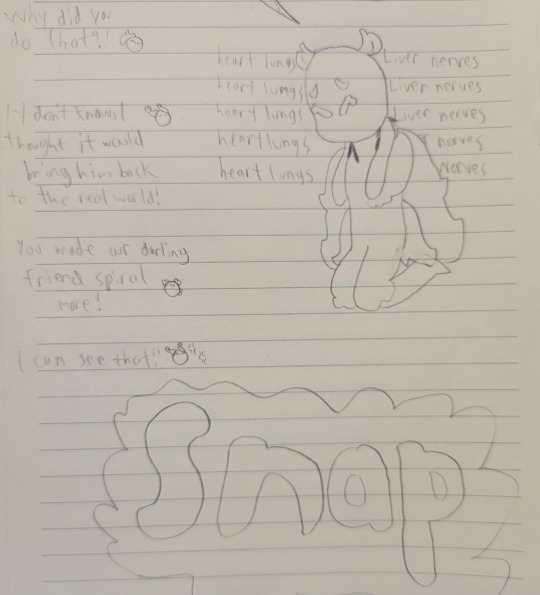 Why did you
do that?!
I-I don't know! I
thought it would
bring him back
to the real world!
You made our darling
friend spiral
more!
I can see that!!
heart lungs
heart lungs
heart lungs
heart lungs
heart lungs
Liver nerves
Liver nerves
Liver nerves
nerves
Nerves
Snap